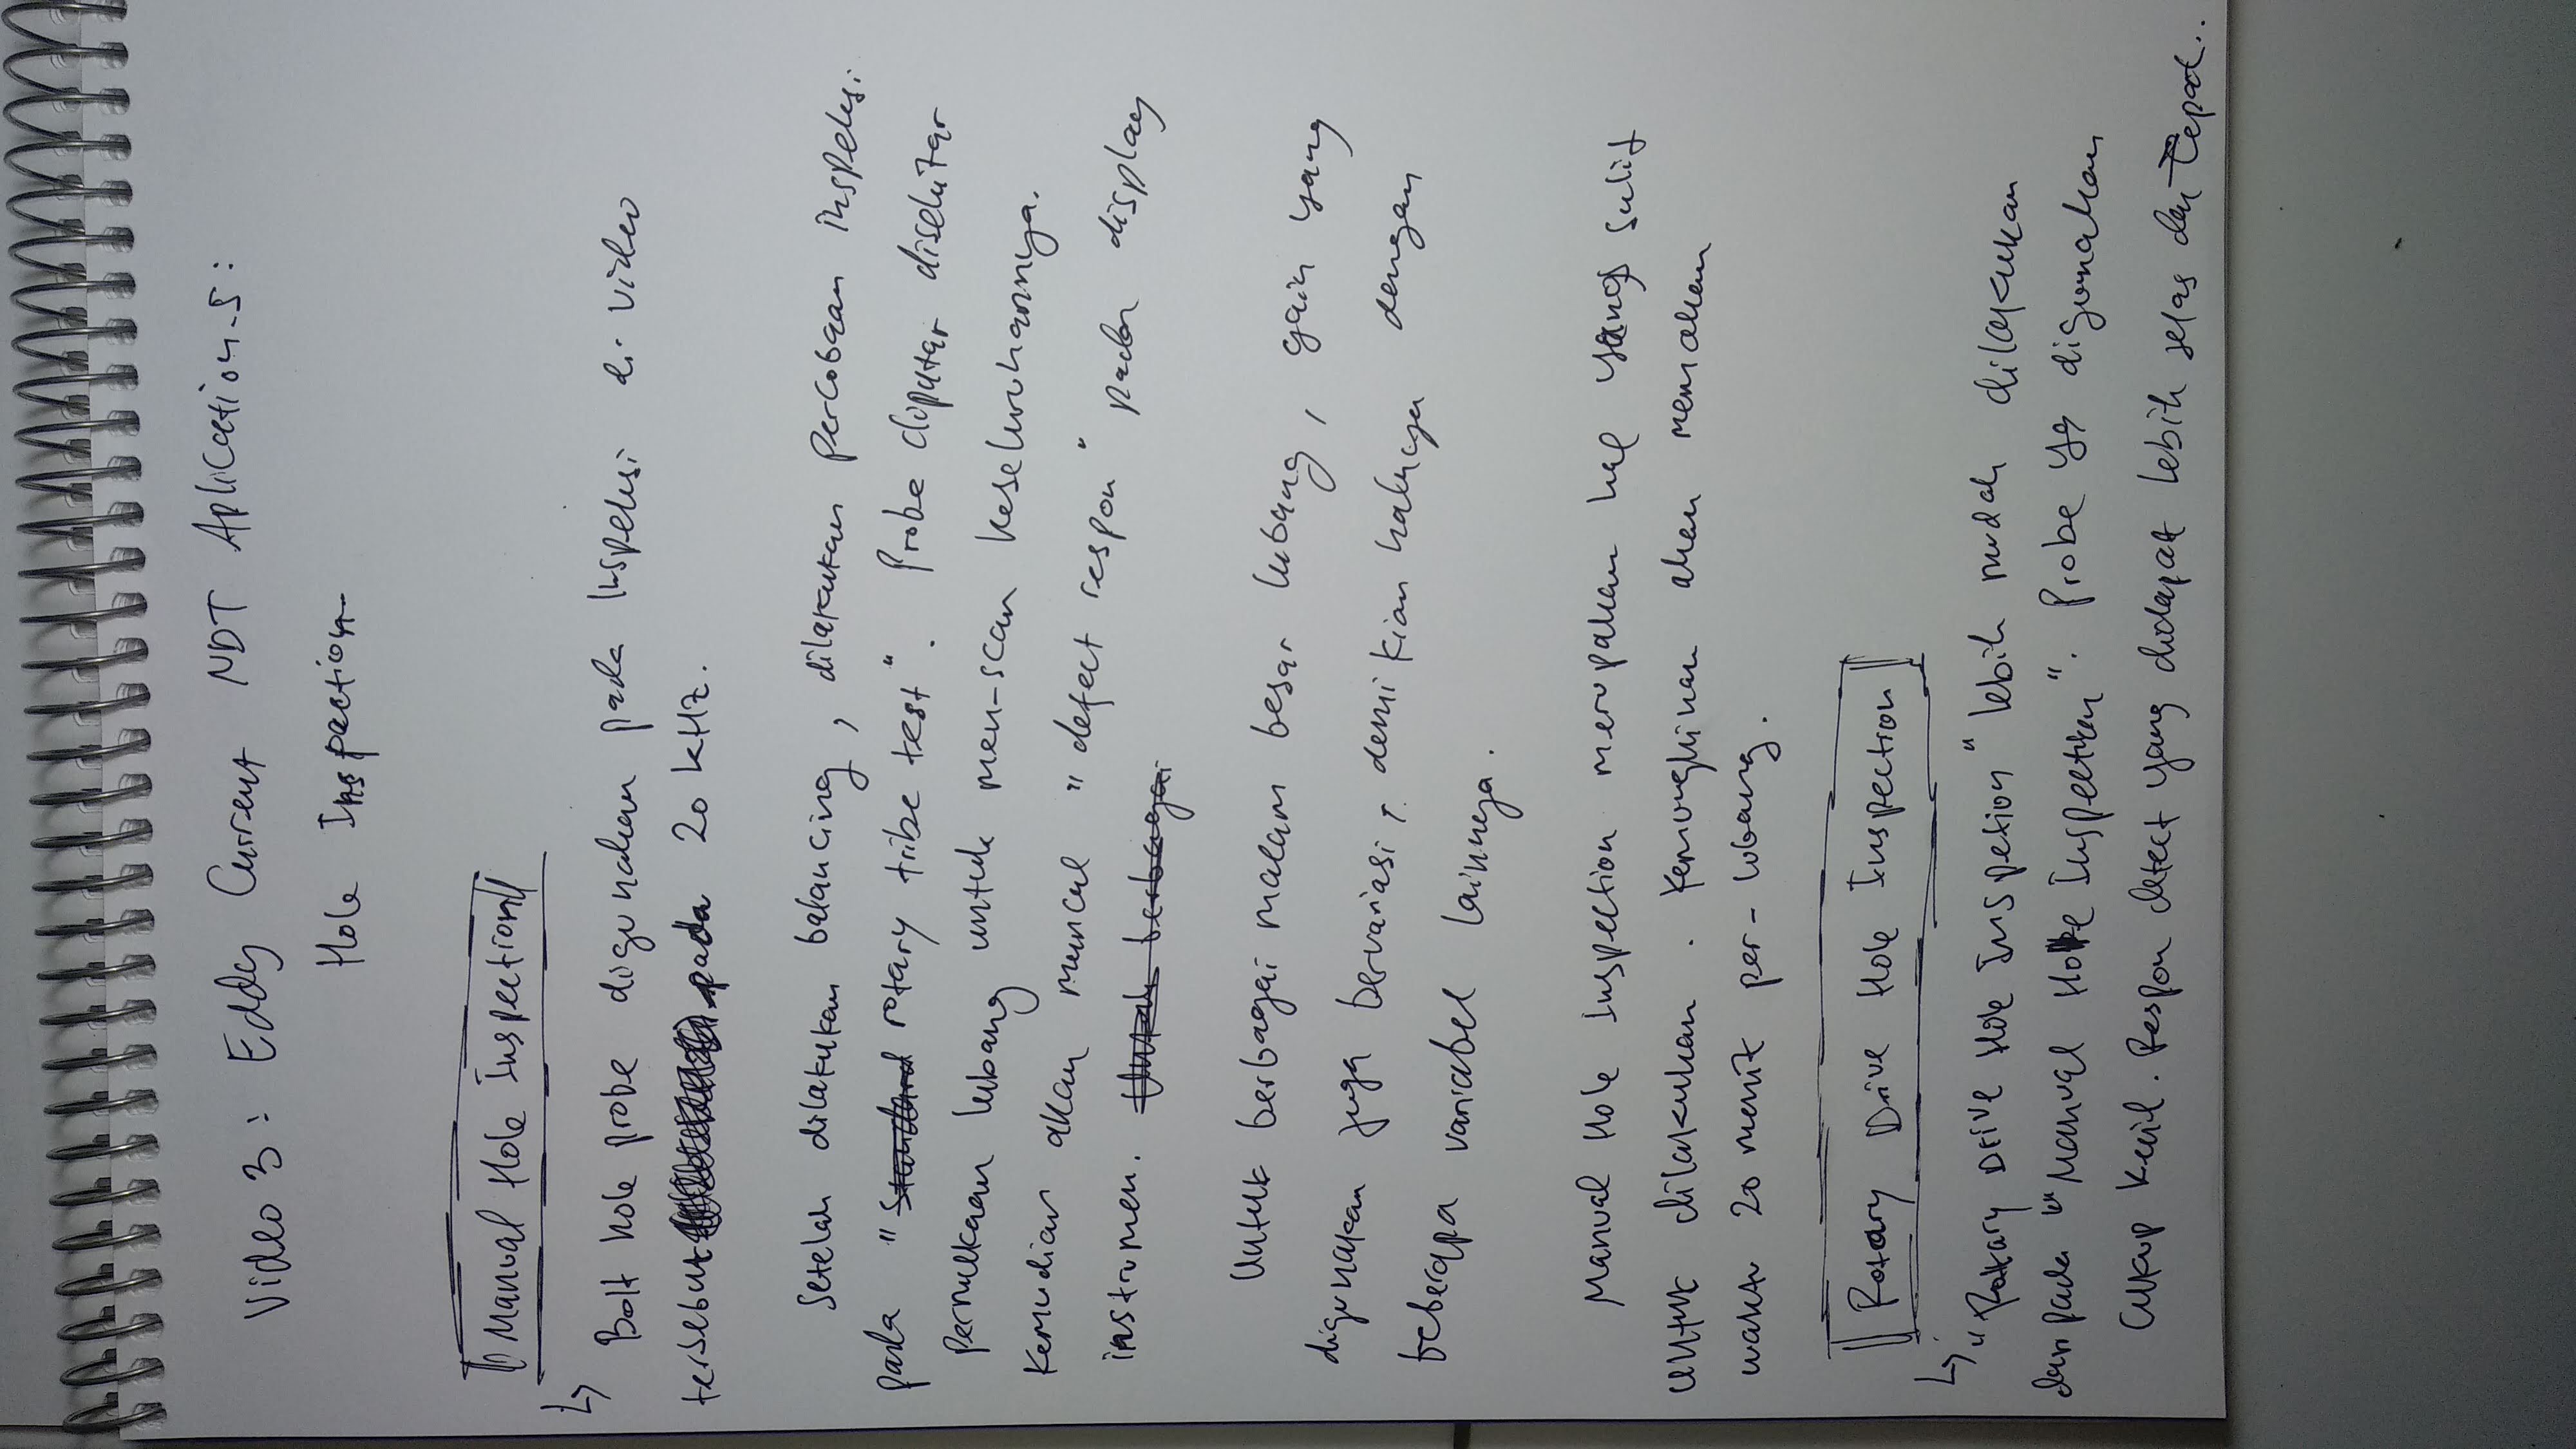 Video 3 : Eddy Current NDT Aplication-s :
Hole Inspection
Manual Hole Inspection
↳
Bolt hole probe digunakan pada Inspeksi di video
tersebut pada 20 kHz.
Setelah dilakukan balancing, dilakukan percobaan inspeksi
pada "Standard rotary tribe test". Probe diputar disekitar
permukaan lubang untuk men-scan keseluruhannya.
Kemudian akan muncul "defect respon" pada display
instrumen. Untuk berbagai
Untuk berbagai macam besar lubang, gain yang
digunakan juga bervariasi, demikian halnya dengan
beberapa variabel lainnya.
Manual Hole Inspection merupakan hal yang sulit
untuk dilakukan. Kemungkinan akan memakan
waktu 20 menit per-lubang.
Rotary Drive Hole Inspection
↳
"Rotary Drive Hole Inspetion" lebih mudah dilakukan
daripada "Manual Hole Inspection". Probe yg digunakan
Cukup kecil. Respon defect yang didapat lebih jelas dan cepat..